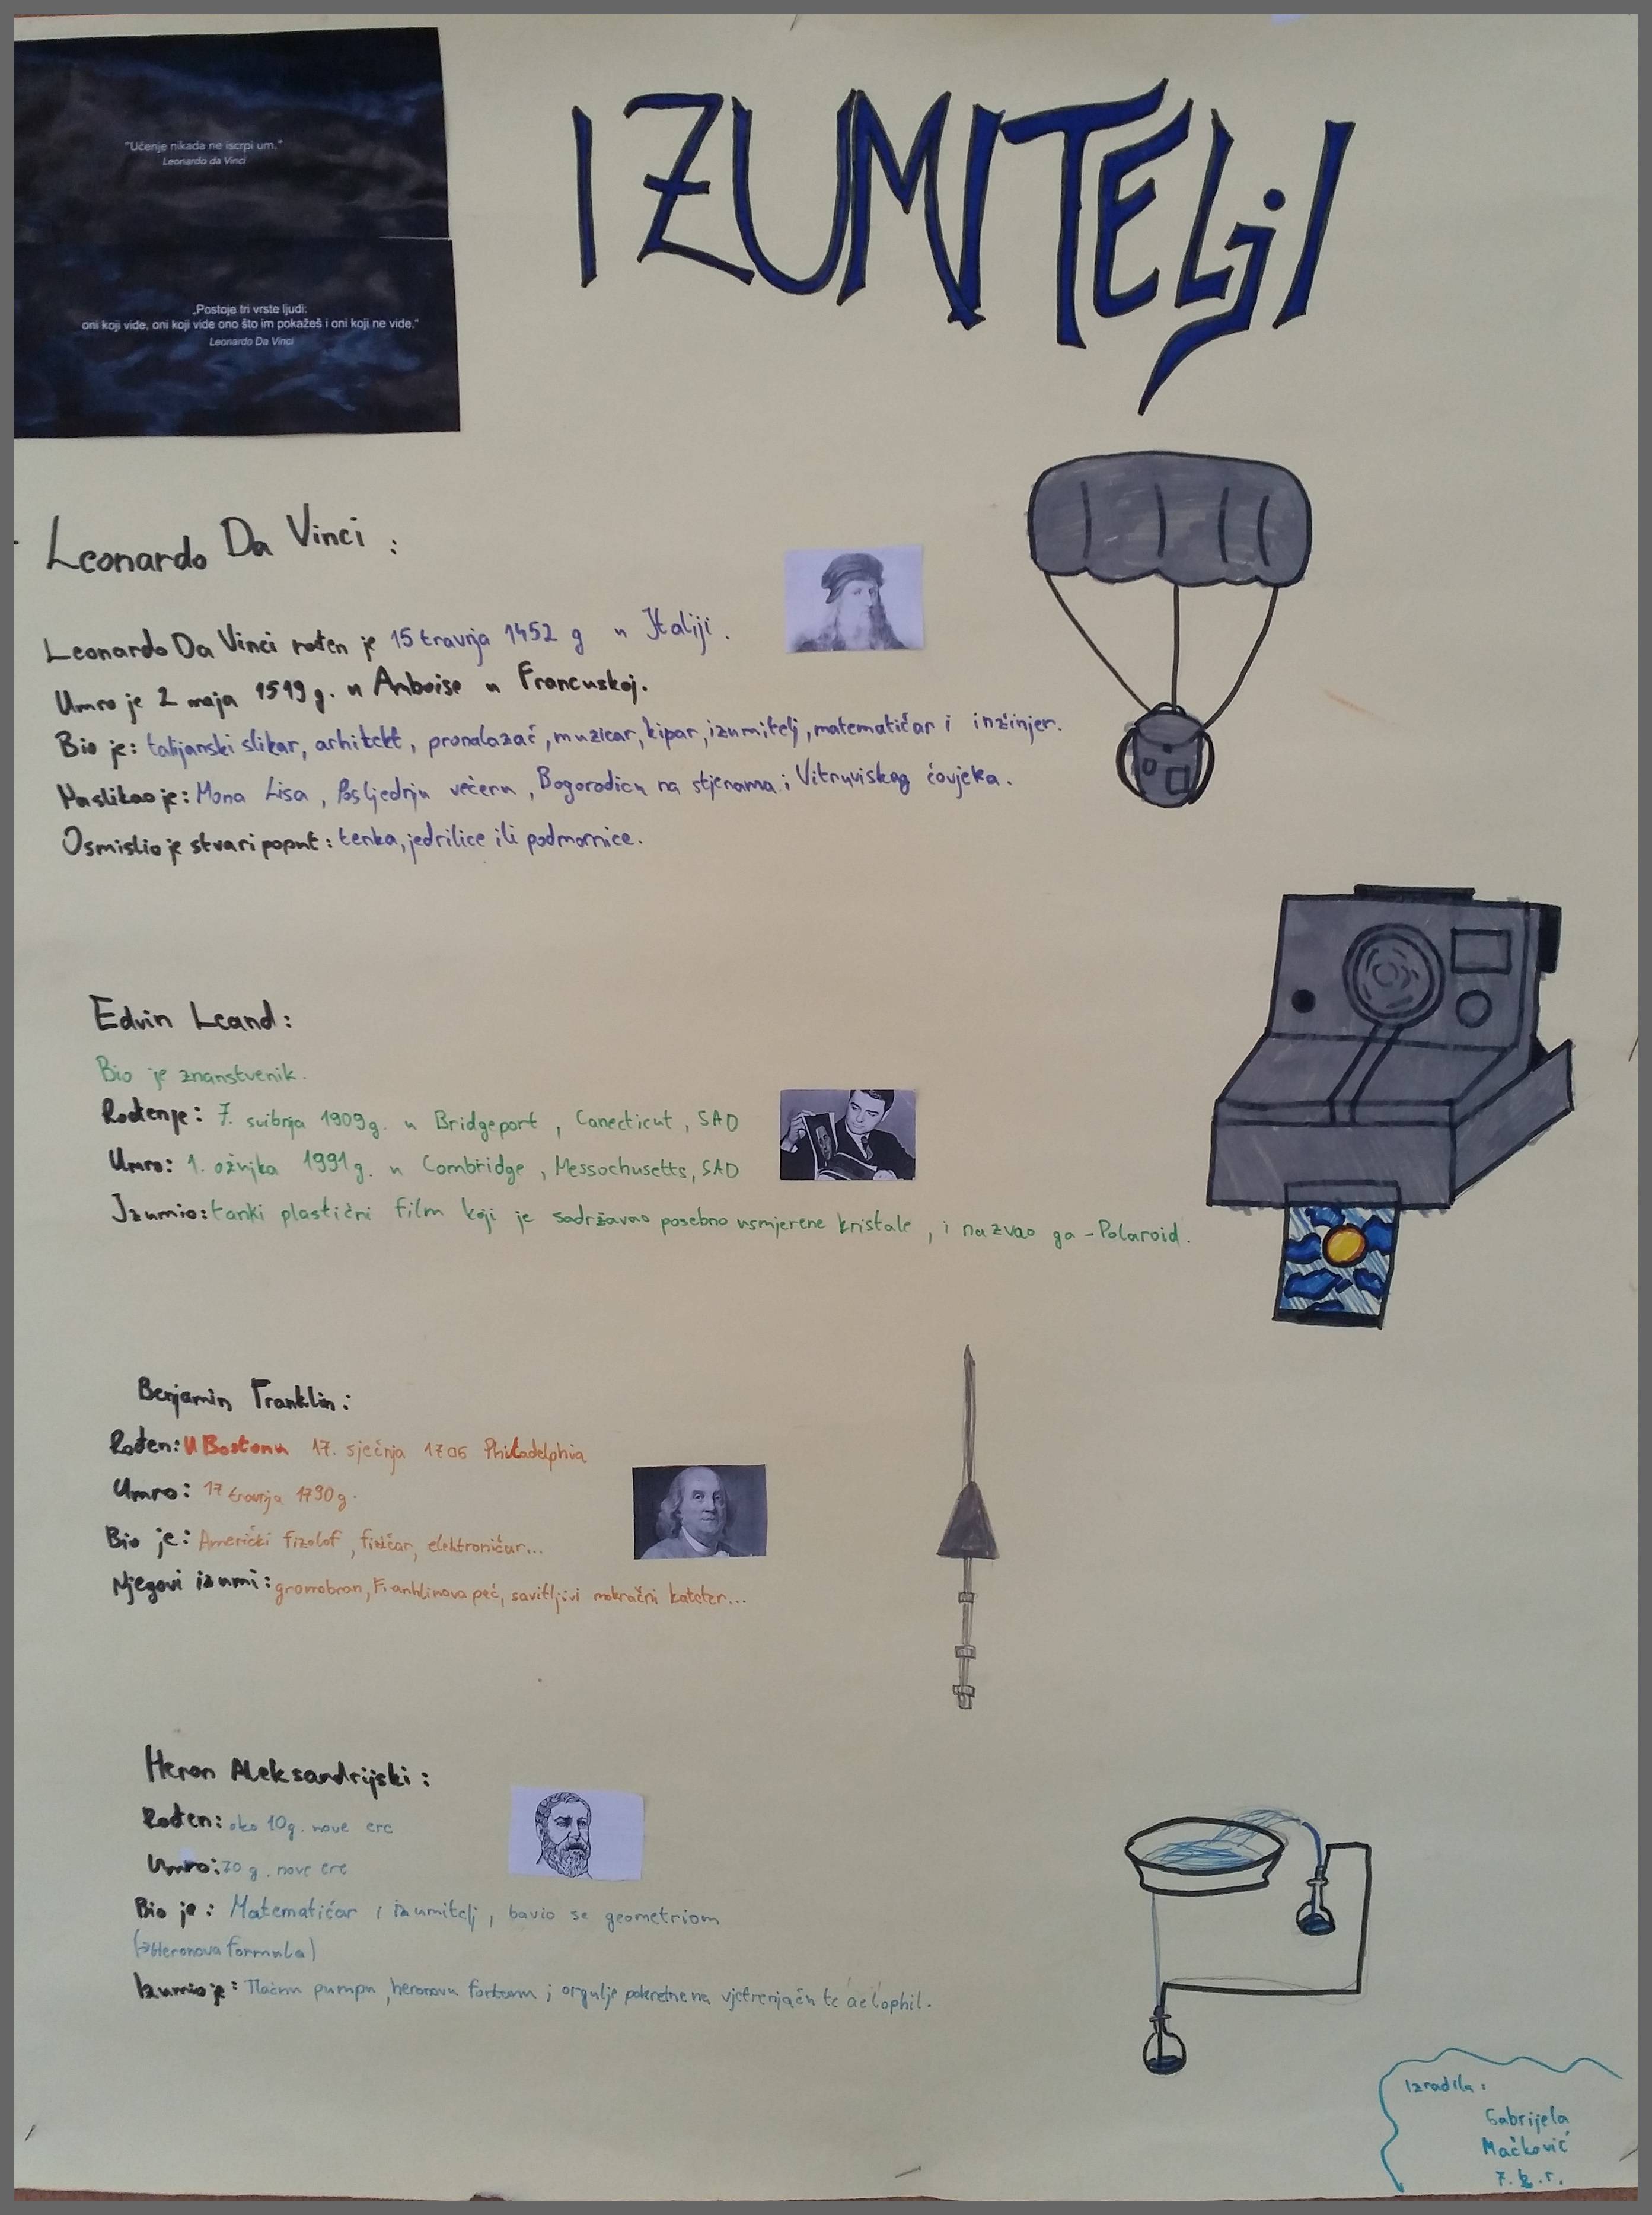 "Učenje nikada ne iscrpi um."
Leonardo da Vinci
„Postoje tri vrste ljudi:
oni koji vide, oni koji vide ono što im pokažeš i oni koji ne vide.“
Leonardo Da Vinci
IZUMITELJI
Leonardo Da Vinci :
Leonardo Da Vinci rođen je 15 travnja 1452 g u Italiji.
Umro je 2 maja 1519 g. u Anboise u Francuskoj.
Bio je: talijanski slikar, arhitekt, pronalazač, muzicar, kipar, izumitelj, matematičar i inžinjer.
Naslikao je: Mona Lisa, Posljednju večeru, Bogorodicu na stjenama i Vitruviskog čovjeka.
Osmislio je stvari poput: tenka, jedrilice ili podmornice.
Edvin Leand:
Bio je znanstvenik.
Rođenje: 7. svibnja 1909g. u Bridgeport, Conecticut, SAD
Umro: 1. ožujka 1991g. u Combridge, Messochusetts, SAD
Izumio: tanki plastični film koji je sadržavao posebno usmjerene kristale, i nazvao ga - Polaroid.
Benjamin Franklin:
Rođen: U Bostonu 17. sječnja 1706 Philadelphia
Umro: 17 travnja 1790g.
Bio je: Američki fizolof, fizičar, elektroničar...
Njegovi izumi: gromobran, Franklinova peć, savitljivi mokračni kateter...
Heron Aleksandrijski:
Rođen: oko 10g. nove ere
Umro: 70 g. nove ere
Bio je: Matematičar i izumitelj, bavio se geometriom
(→Heronova formula)
Izumio je: Tlačnu pumpu, heronovu fontanu i orgulje pokretne na vjetrenjaču te aelophil.
Izradila:
Gabrijela
Mačković
7. r.